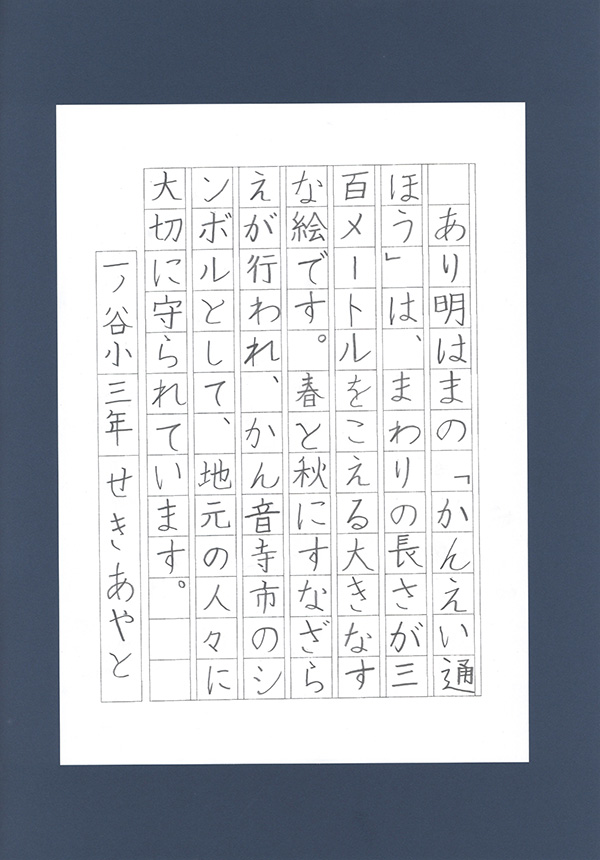 あり明はまの「かんえい通
ほう」は、まわりの長さが三
百メートルをこえる大きなす
な絵です。春と秋にすなざら
えが行われ、かん音寺市のシ
ンボルとして、地元の人々に
大切に守られています。
一ノ谷小三年せきあやと